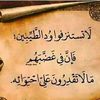 لَا تَسْتَفِزُّوا وُدَّ الطَّيِّبِينَ؛
فَإِنَّ فِي غَضَبِهِم
مَا لَا تَقْدِرُونَ عَلَى احْتِوَائِهِ